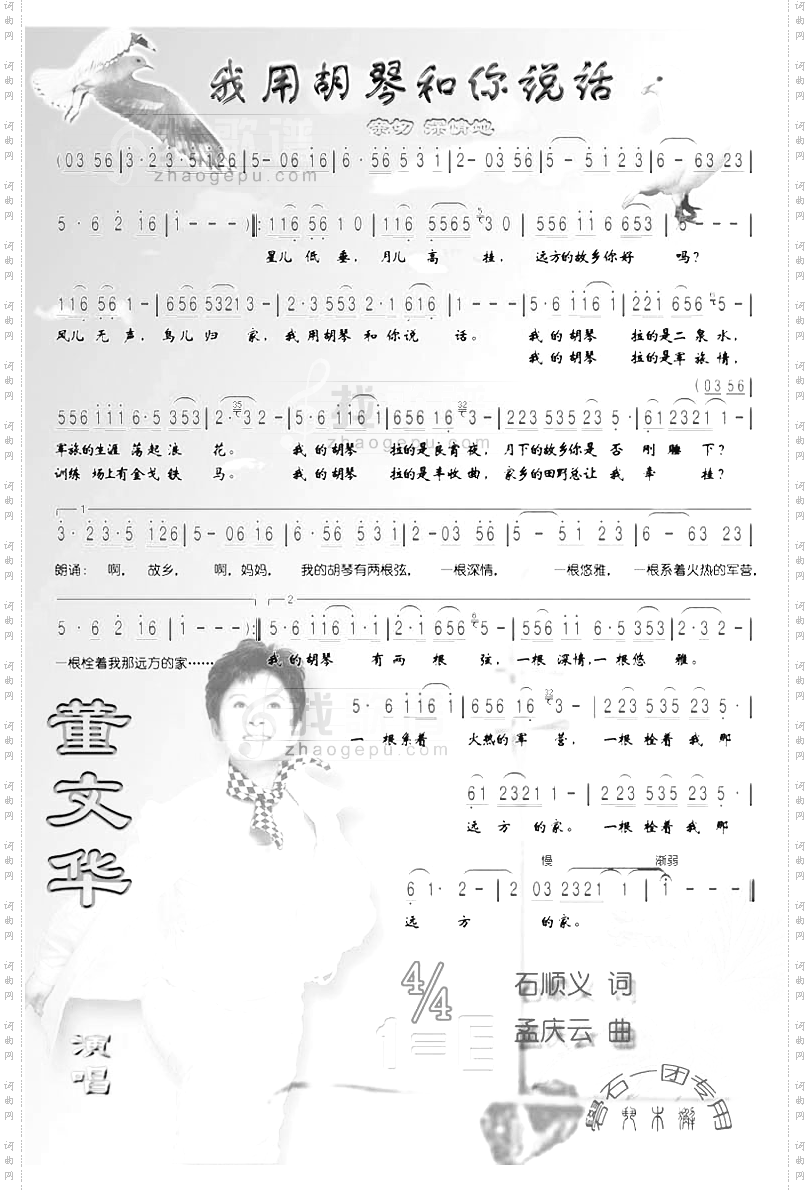 我用胡琴和你说话
亲切 深情地
找歌谱
zhaogepu.com
(03 56 | 3·2 3·5 126 | 5- 06 16 | 6·56 53 1 | 2- 03 56 | 5- 5 1 2 3 | 6- 63 23 |
5·6 2 16 | 1 - - - ) ‖: 116 56 1 0 | 116 5565 3 0 | 556 11 6 653 | 5 - - - |
星儿 低 垂, 月儿 高 挂, 远方的故乡你好 吗?
116 56 1- | 656 5321 3- | 2·3 553 2·1 616 | 1 - - - | 5·6 116 1 | 221 656 5- |
风儿 无 声, 鸟儿 归 家, 我 用胡琴 和 你说 话。 我 的 胡琴 拉的是二 泉 水,
我 的 胡琴 拉的是军 旅 情,
(03 56
556 1 1 1 6·5 353 | 2· 3 2- | 5·6 116 1 | 656 16 3- | 223 535 23 5· | 61 2321 1- |
军旅的生涯 荡起 浪 花。 我 的 胡琴 拉的是良宵夜, 月下的故乡你是 否 刚 睡 下?
训练 场上有金戈 铁 马。 我 的 胡琴 拉的是丰收曲, 家乡的田野总让 我 牵 挂?
1
3·2 3·5 126 | 5- 06 16 | 6·56 53 1 | 2-03 56 | 5- 51 23 | 6- 63 23
朗诵: 啊, 故乡, 啊,妈妈, 我的胡琴有两根弦, 一根深情, 一根悠雅, 一根系着火热的军营,
2
5·6 2 16 | 1 - - - :‖ 5·6 116 1·1 | 2·1 656 5- | 556 11 6·5 353 | 2·3 2- |
一根栓着我那远方的家…… 我 的 胡琴 有 两 根 弦, 一根 深情,一根 悠 雅。
5· 6 116 1 | 656 16 3- | 223 535 23 5· |
一 根系着 火热的军 营, 一根 栓着 我 那
zhaogepu.com
61 2321 1- | 2 23 535 23 5· |
远 方 的 家。 一根 栓着 我 那
慢 渐弱
6 1· 2- | 2 03 2321 1 | 1 - - ‖
远 方 的 家。
董文华
演唱
4/4
石顺义 词
孟庆云 曲